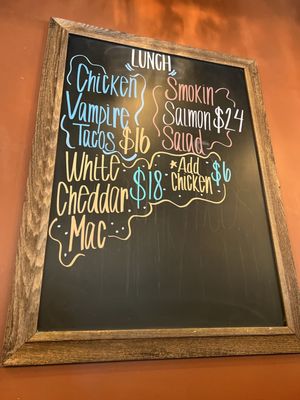 LUNCH
Chicken
Vampire
Tacos $16
Smokin
Salmon $24
Salad
White
Cheddar $18
Mac
*Add $6
Chicken